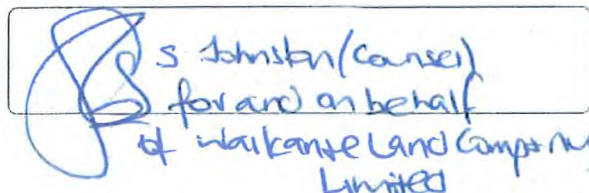 S Johnston (Counsel)
for and on behalf
of Waikanae Land Company
Limited